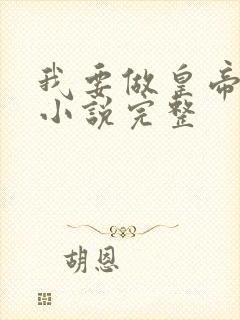 我要做皇帝
小说完整
胡恩